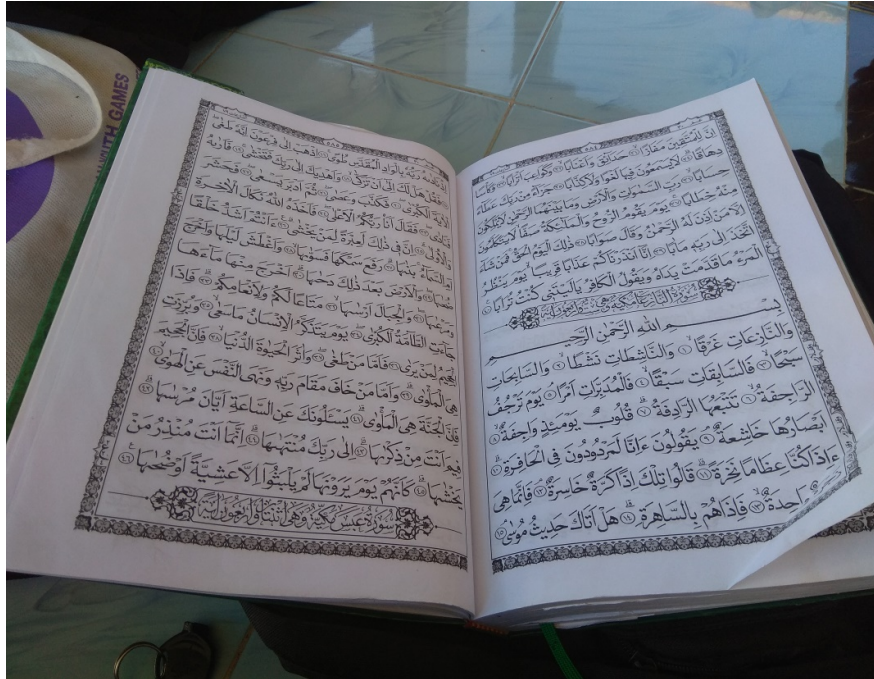 إِنَّ لِلْمُتَّقِينَ مَفَازًا ٣١ حَدَائِقَ وَأَعْنَابًا ٣٢ وَكَوَاعِبَ أَتْرَابًا ٣٣ وَكَأْسًا
دِهَاقًا ٣٤ لَا يَسْمَعُونَ فِيهَا لَغْوًا وَلَا كِذَّابًا ٣٥ جَزَاءً مِنْ رَبِّكَ عَطَاءً
حِسَابًا ٣٦ رَبِّ السَّمٰوَاتِ وَالْأَرْضِ وَمَا بَيْنَهُمَا الرَّحْمٰنِ لَا يَمْلِكُونَ
مِنْهُ خِطَابًا ٣٧ يَوْمَ يَقُومُ الرُّوحُ وَالْمَلٰئِكَةُ صَفًّا لَا يَتَكَلَّمُونَ
إِلَّا مَنْ أَذِنَ لَهُ الرَّحْمٰنُ وَقَالَ صَوَابًا ٣٨ ذٰلِكَ الْيَوْمُ الْحَقُّ فَمَنْ شَاءَ
اتَّخَذَ إِلٰى رَبِّهِ مَاٰبًا ٣٩ إِنَّا أَنْذَرْنَاكُمْ عَذَابًا قَرِيبًا يَوْمَ يَنْظُرُ
الْمَرْءُ مَا قَدَّمَتْ يَدَاهُ وَيَقُولُ الْكَافِرُ يَالَيْتَنِي كُنْتُ تُرَابًا ٤٠
سُورَةُ النَّازِعَاتِ مَكِّيَّةٌ وَهِيَ سِتٌّ وَأَرْبَعُونَ آيَةً
بِسْمِ اللّٰهِ الرَّحْمٰنِ الرَّحِيمِ
وَالنَّازِعَاتِ غَرْقًا ١ وَالنَّاشِطَاتِ نَشْطًا ٢ وَالسَّابِحَاتِ
سَبْحًا ٣ فَالسَّابِقَاتِ سَبْقًا ٤ فَالْمُدَبِّرَاتِ أَمْرًا ٥ يَوْمَ تَرْجُفُ
الرَّاجِفَةُ ٦ تَتْبَعُهَا الرَّادِفَةُ ٧ قُلُوبٌ يَوْمَئِذٍ وَاجِفَةٌ ٨
أَبْصَارُهَا خَاشِعَةٌ ٩ يَقُولُونَ ءَاِنَّا لَمَرْدُودُونَ فِي الْحَافِرَةِ ١٠
ءَاِذَا كُنَّا عِظَامًا نَخِرَةً ١١ قَالُوا تِلْكَ إِذًا كَرَّةٌ خَاسِرَةٌ ١٢ فَإِنَّمَا هِيَ
وَاحِدَةٌ ١٣ فَإِذَا هُمْ بِالسَّاهِرَةِ ١٤ هَلْ أَتَاكَ حَدِيثُ مُوسٰى ١٥
إِذْ نَادٰهُ رَبُّهُ بِالْوَادِ الْمُقَدَّسِ طُوًى ١٦ اِذْهَبْ إِلٰى فِرْعَوْنَ إِنَّهُ طَغٰى ١٧
فَقُلْ هَلْ لَكَ إِلٰى أَنْ تَزَكّٰى ١٨ وَأَهْدِيَكَ إِلٰى رَبِّكَ فَتَخْشٰى ١٩ فَأَرٰيهُ
الْآيَةَ الْكُبْرٰى ٢٠ فَكَذَّبَ وَعَصٰى ٢١ ثُمَّ أَدْبَرَ يَسْعٰى ٢٢ فَحَشَرَ
فَنَادٰى ٢٣ فَقَالَ أَنَا رَبُّكُمُ الْأَعْلٰى ٢٤ فَأَخَذَهُ اللّٰهُ نَكَالَ الْآخِرَةِ
وَالْأُولٰى ٢٥ إِنَّ فِي ذٰلِكَ لَعِبْرَةً لِمَنْ يَخْشٰى ٢٦ ءَاَنْتُمْ أَشَدُّ خَلْقًا
أَمِ السَّمَاءُ بَنٰيهَا ٢٧ رَفَعَ سَمْكَهَا فَسَوّٰيهَا ٢٨ وَأَغْطَشَ لَيْلَهَا وَأَخْرَجَ
ضُحٰيهَا ٢٩ وَالْأَرْضَ بَعْدَ ذٰلِكَ دَحٰيهَا ٣٠ أَخْرَجَ مِنْهَا مَاءَهَا
وَمَرْعٰيهَا ٣١ وَالْجِبَالَ أَرْسٰيهَا ٣٢ مَتَاعًا لَكُمْ وَلِأَنْعَامِكُمْ ٣٣ فَإِذَا
جَاءَتِ الطَّامَّةُ الْكُبْرٰى ٣٤ يَوْمَ يَتَذَكَّرُ الْإِنْسَانُ مَا سَعٰى ٣٥ وَبُرِّزَتِ
الْجَحِيمُ لِمَنْ يَرٰى ٣٦ فَأَمَّا مَنْ طَغٰى ٣٧ وَاٰثَرَ الْحَيٰوةَ الدُّنْيَا ٣٨ فَإِنَّ الْجَحِيمَ
هِيَ الْمَأْوٰى ٣٩ وَأَمَّا مَنْ خَافَ مَقَامَ رَبِّهِ وَنَهَى النَّفْسَ عَنِ الْهَوٰى ٤٠
فَإِنَّ الْجَنَّةَ هِيَ الْمَأْوٰى ٤١ يَسْأَلُونَكَ عَنِ السَّاعَةِ أَيَّانَ مُرْسٰيهَا ٤٢
فِيمَ أَنْتَ مِنْ ذِكْرٰيهَا ٤٣ إِلٰى رَبِّكَ مُنْتَهٰيهَا ٤٤ إِنَّمَا أَنْتَ مُنْذِرُ مَنْ
يَخْشٰيهَا ٤٥ كَأَنَّهُمْ يَوْمَ يَرَوْنَهَا لَمْ يَلْبَثُوا إِلَّا عَشِيَّةً أَوْ ضُحٰيهَا ٤٦
سُورَةُ عَبَسَ مَكِّيَّةٌ وَهِيَ اثْنَتَانِ وَأَرْبَعُونَ آيَةً
GAMES